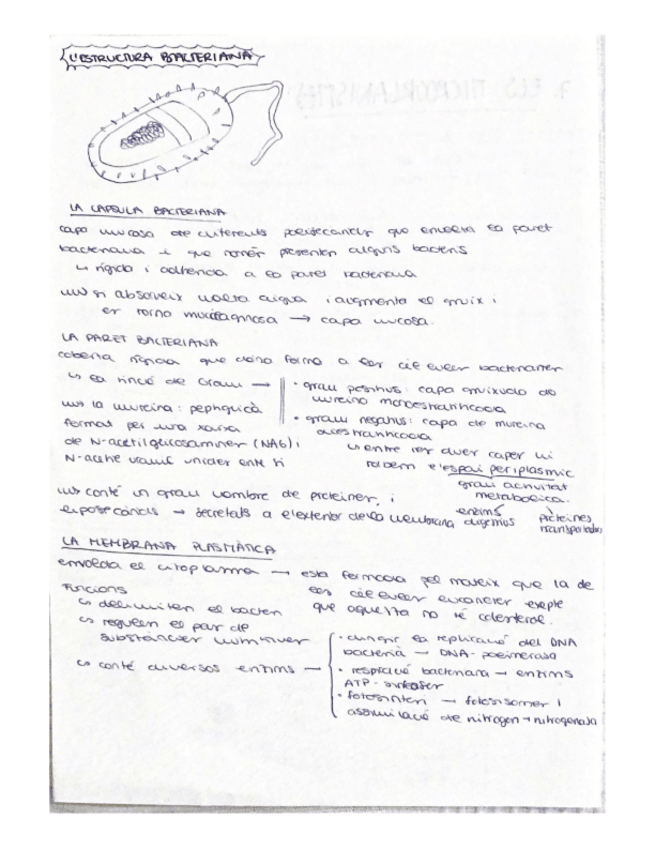 L'ESTRUCTURA BACTERIANA
LA CÀPSULA BACTERIANA
capa mucosa de diferents polisacàrids que envolta la paret
bacteriana i que només presenten alguns bacteris
↳ rígida i adherida a la paret bacteriana
si absorveix molta aigua i augmenta el gruix i
es torna → capa mucosa.
LA PARET BACTERIANA
coberta rígida que dóna forma a les cèl·lules bacterianes
↳ la tinció de Gram → • gram positius: capa gruixuda de
mureïna monoestratificada
la mureïna: peptiglicà • gram negatius: capa de mureïna
format per una xarxa biestratificada
de N-acetilglicosamines (NAG) i ↳ entre les dues capes hi
N-acetil uràmic unides entre si trobem l'espai periplasmic
gran activitat
conté un gran nombre de proteïnes, i metabòlica.
liposacàrids → secretats a l'exterior de la membrana enzims proteïnes
digestius transportadores
LA MEMBRANA PLASMÀTICA
envolta el citoplasma → està formada pel mateix que la de
Funcions les cèl·lules eucariotes excepte
↳ delimiten el bacteri que aquesta no té colesterol.
↳ regulen el pas de
substàncies nutritives • dirigir la replicació del DNA
bacterià → DNA-polimerasa
↳ conté diversos enzims → • respiració bacteriana → enzims
ATP-sintases
• fotosíntesi → fotosistemes i
assimilació de nitrogen → nitrogenasa